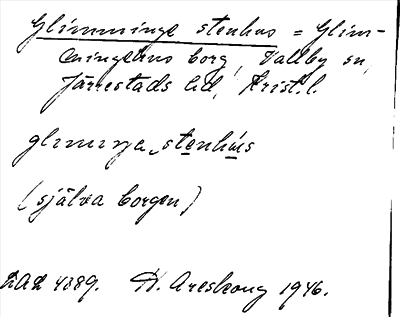 Glimminge stenhus = Glim-
mingehus borg, Vallby sn,
Järrestads hd, Krist. l.
stenhús
(själva borgen)
LAL 4889. H. Areskoug 1946.